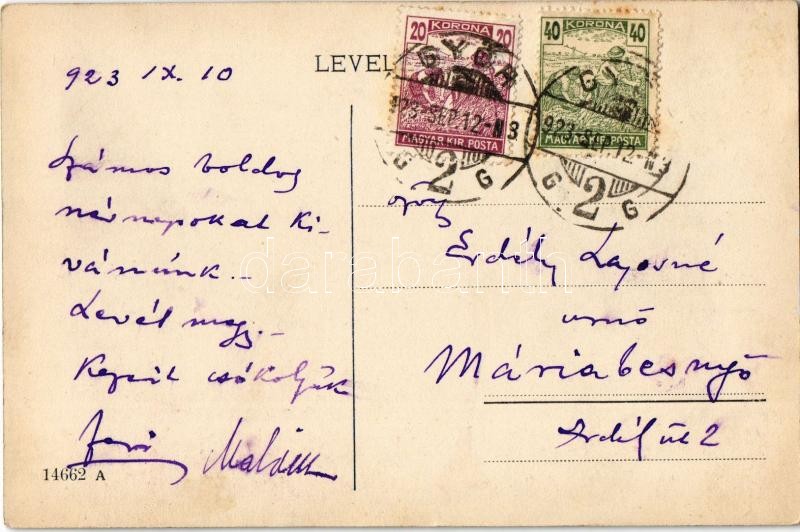 923 IX. 10
LEVEL
20 KORONA 20
MAGYAR KIR. POSTA
40 KORONA 40
MAGYAR KIR. POSTA
GYŐR
923 SEP. 12-N3
G 2 G
923 SEP. 12-N3
G 2 G
Számos boldog
névnapokat ki-
vánunk.
Levél megy.
Kezeit csókoljuk
Jenő
özv
Erdély Lajosné
urnő
Máriabesnyő
Erdély út 2
14662 A
darabanth